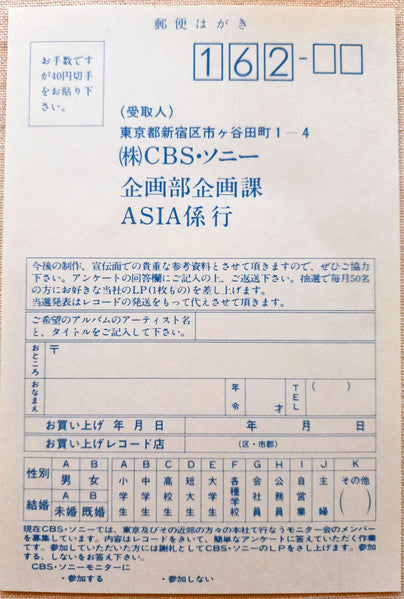 郵便はがき
お手数です
が40円切手
をお貼り下
さい。
162-
(受取人)
東京都新宿区市ヶ谷田町1－4
㈱CBS・ソニー
企画部企画課
ASIA係行
今後の制作、宣伝面での貴重な参考資料とさせて頂きますので、ぜひご協力
下さい。アンケートの回答欄にご記入の上、ご返送下さい。抽選で毎月50名
の方にお好きな当社のLP(1枚もの)を差し上げます。
当選発表はレコードの発送をもって代えさせて頂きます。
ご希望のアルバムのアーティスト名
と、タイトルをご記入して下さい。
おところ 〒
おなまえ 年令 才 TEL ( )
お買い上げ 年 月 日 年 月 日
お買い上げレコード店 (区・市郡)
性別 A 男 B 女
結婚 A 未婚 B 既婚
A 小学生
B 中学生
C 高校生
D 短大生
E 大学生
F 各種学校
G 会社員
H 公務員
I 自営業
J 主婦
K その他 ( )
現在CBS・ソニーでは、東京及びその近郊の方々の本社で行なうモニター会のメンバー
を募集しています。内容はレコードをきいて、簡単なアンケートに答えていただく作業
です。参加していただいた方には謝礼としてCBS・ソニーのLPをさし上げます。参加
する、しないをお答え下さい。
CBS・ソニーモニターに
・参加する ・参加しない